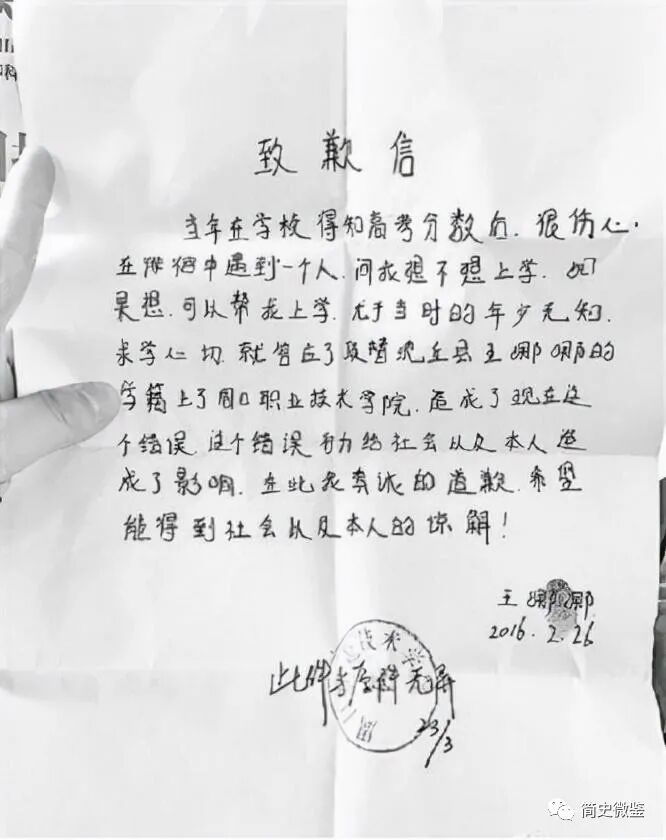 致歉信
当年在学校得知高考分数后.很伤心.
在徘徊中遇到一个人.问我想不想上学.如
果想.可以帮我上学.尤于当时的年少无知.
求学心切.就答应了顶替沈丘县王娜娜的
学籍上了周口职业技术学院.造成了现在这
个错误.这个错误 给社会以及本人造
成了影响.在此我真诚的道歉.希望
能得到社会以及本人的谅解!
王娜娜
2016.2.26
技术学
此件与原件无异
23/3
简史微鉴